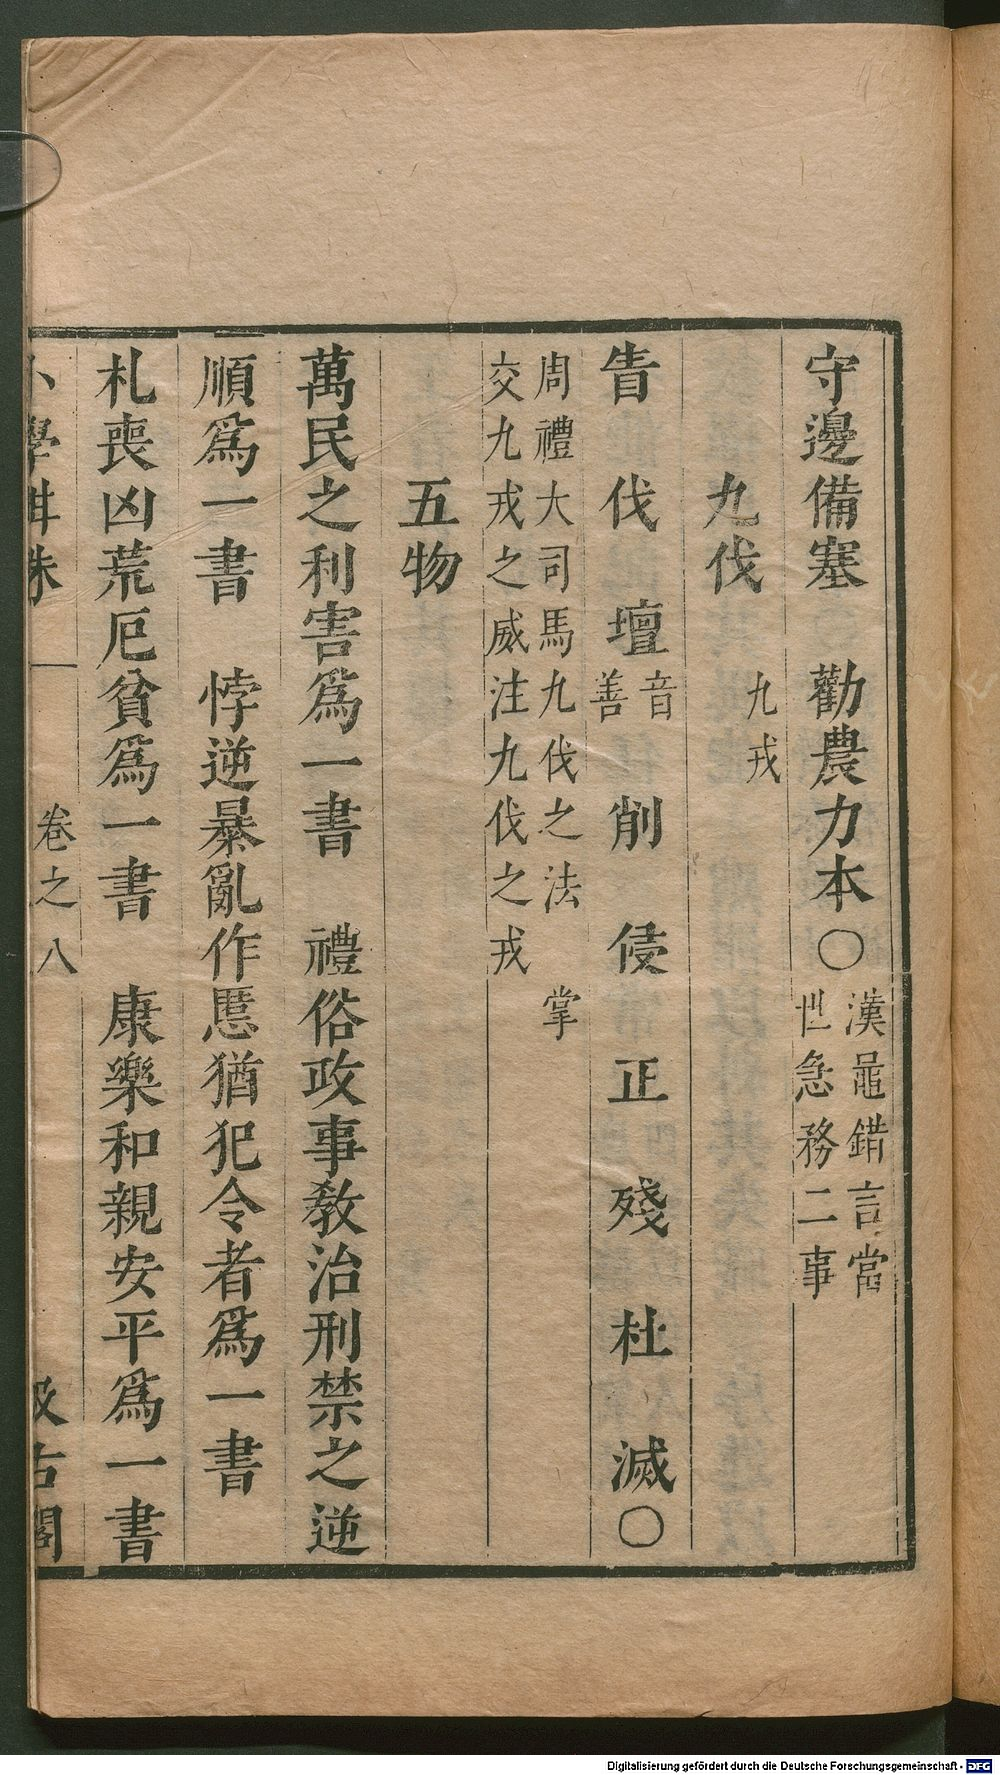 守邊備塞　勸農力本〇漢鼂錯言當世急務二事
九伐　九戎
眚　伐　壇音善　削　侵　正　殘　杜　滅〇
周禮大司馬九伐之法　掌交九戎之威注九伐之戎
五物
萬民之利害爲一書　禮俗政事敎治刑禁之逆
順爲一書　悖逆暴亂作慝猶犯令者爲一書
札喪凶荒厄貧爲一書　康樂和親安平爲一書
小學紺珠　卷之八　汲古閣
Digitalisierung gefördert durch die Deutsche Forschungsgemeinschaft - DFG